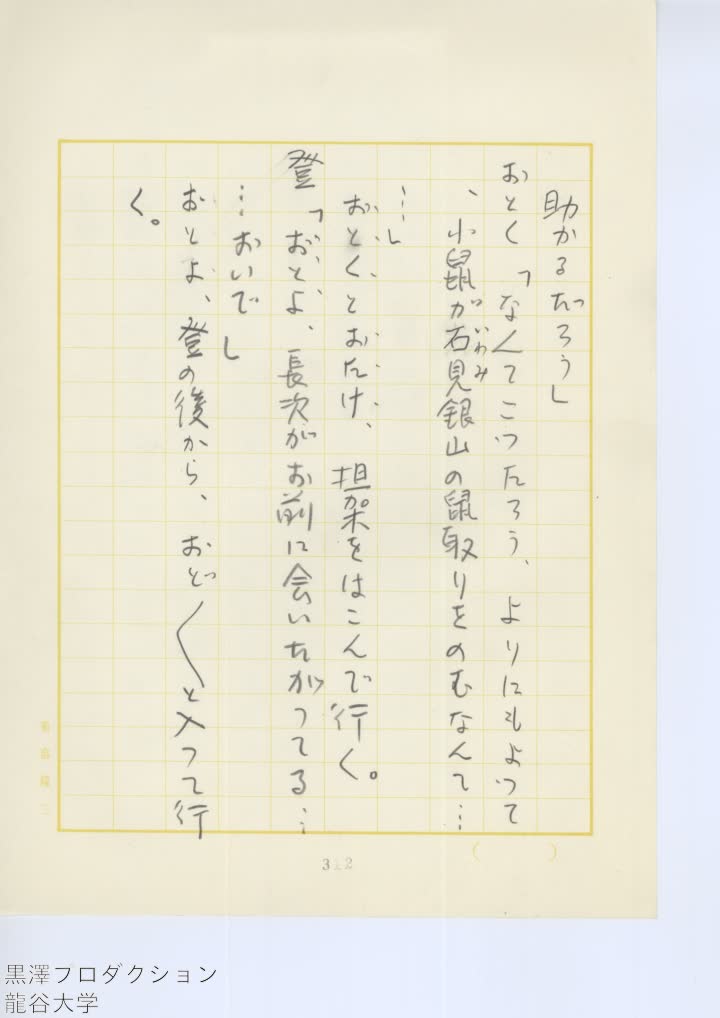 助かるだろうし
おとく「なんてこつたろう、よりにもよつて
、小鼠が石見銀山の鼠取りをのむなんて…
いわみ
…」
おとくとおたけ、担架をはこんで行く。
登「おとよ、長次がお前に会いたがつてる…
…おいで」
おとよ、登の後から、おど〱と入つて行
く。
312
黒澤プロダクション
龍谷大学